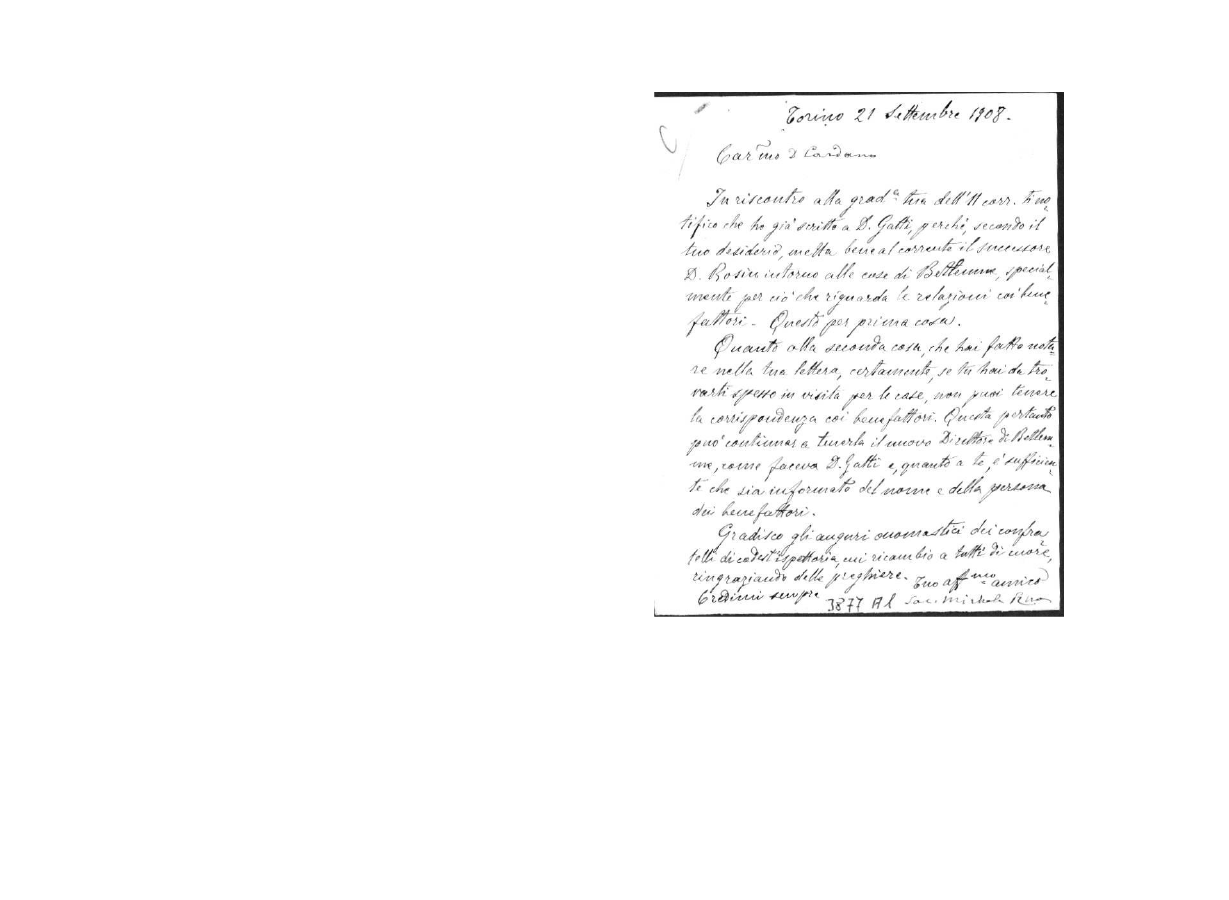 Torino 21 Settembre 1908.-
Car.mo D Cardano
In riscontro alla grad.a tua dell'11 corr. ti no-
tifico che ho già scritto a D. Gatti, perchè, secondo il
tuo desiderio, metta bene al corrente il successore
D. Rosin intorno alle cose di Betlemme, special-
mente per ciò che riguarda le relazioni coi bene-
fattori - Questo per prima cosa.
Quanto alla seconda cosa, che hai fatto nota-
re nella tua lettera, certamente, se tu hai da tro-
varti spesso in visita per le case, non puoi tenere
la corrispondenza coi benefattori. Questa pertanto
può continuar a tenerla il nuovo Direttore di Betlem-
me, come faceva D. Gatti e, quanto a te, è sufficien-
te che sia informato del nome e della persona
dei benefattori.
Gradisco gli auguri onomastici dei confra
telli di codest'ispettoria, cui ricambio a tutti di cuore,
ringraziando delle preghiere. Tuo aff.mo amico
Credimi sempre
3877 Al Sac. Michele Rua